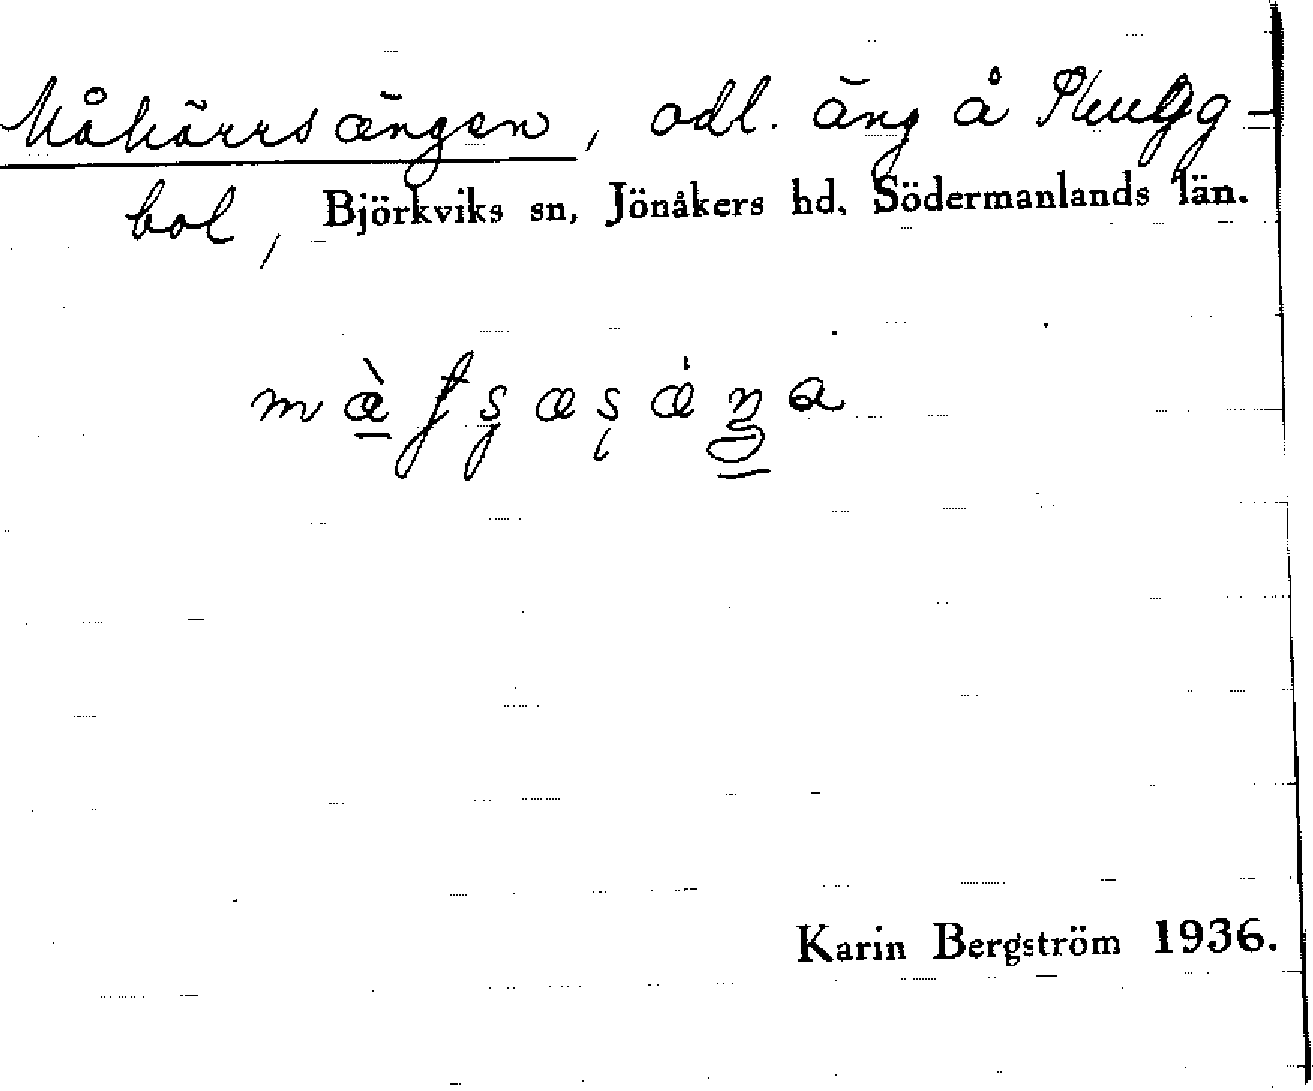 Måkärrsängen, odl. äng å Skugg-
bol, Björkviks sn, Jönåkers hd, Södermanlands län.
Karin Bergström 1936.